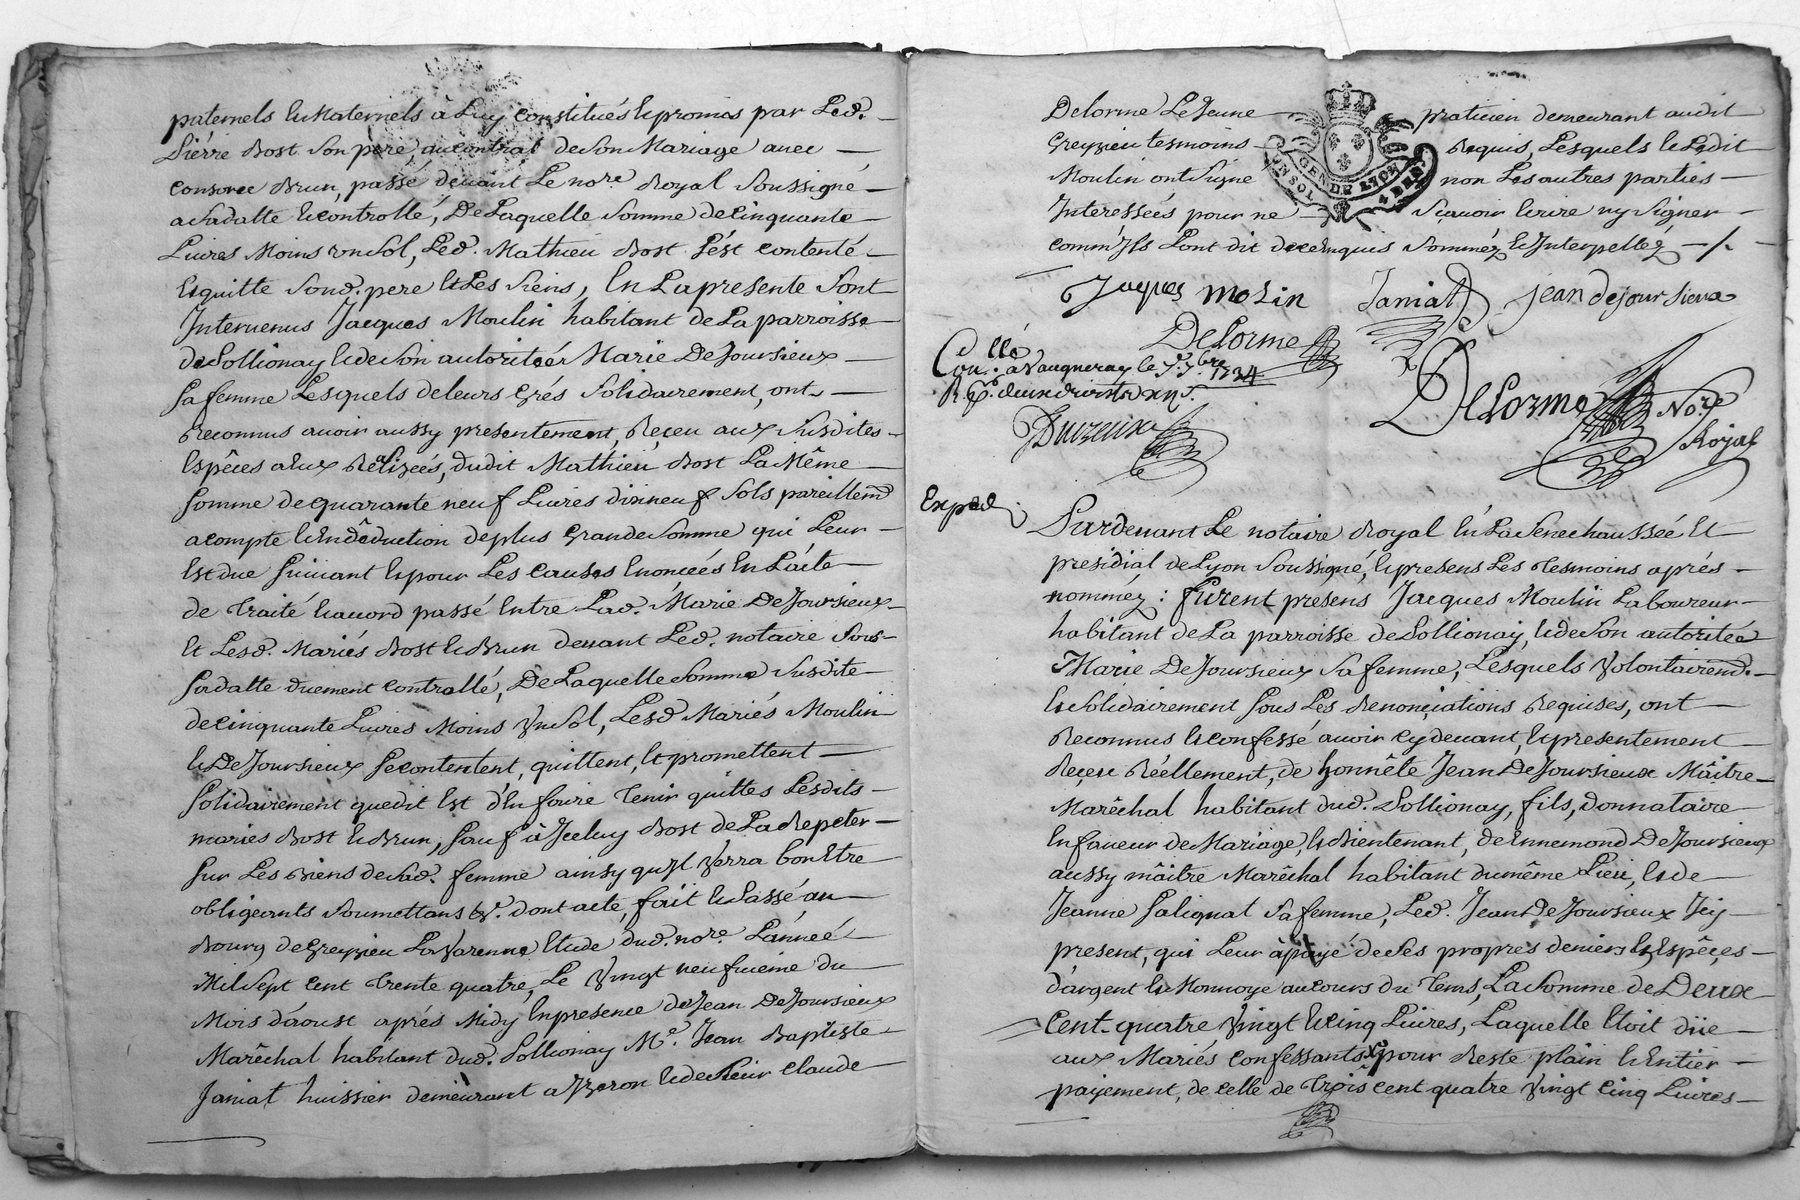 paternels et Maternels à Luy constitués et promis par Led.
Pierre Bost Son pere, au contrat de Son Mariage avec
Brun, passé devant Le nore. Royal Soussigné
a Sa datte et controllé, De Laquelle Somme de Cinquante
Livres Moins un Sol, Led. Mathieu Bost s'est contenté
Et quitte Sond. pere et Les Siens, En La presente Sont
Intervenus Jacques Moulin habitant de La parroisse
de Pollionay et de Son autoritée Marie DeJoursieux
Sa femme Lesquels de leurs Grés Solidairement, ont
Reconnus avoir aussy presentement, Reçeu aux Susdites
Espêces a Eux Réalizeés, dudit Mathieu Bost La Même
Somme de quarante neuf Livres dixneuf Sols pareillemt
a compte et En déduction de plus Grande Somme qui Leur
Est due Suivant et pour Les Causes Enoncées En L'acte
de Traité et acord passé Entre Lad. Marie DeJoursieux
Et Lesd. Mariés Bost et Brun devant Led. notaire Sous
Sa datte duement Controllé, De Laquelle Somme Susdite
de cinquante Livres Moins Un Sol, Lesd. Mariés Moulin
et DeJoursieux Se contentent, quittent, et promettent
Solidairement que dit Est d'En faire Tenir quittes Lesdits
mariés Bost et Brun, Sauf à Iceluy Bost de La Repeter
Sur Les Biens de Sad. femme ainsy qu'Jl Verra bon Etre
obligeants Soumettans &c. dont acte, fait et Passé au
Bourg de Greyzieu La Varenne Etude dud. nore. L'anneé
Mil Sept Cent Trente quatre, Le Vingt neufvieme du
Mois d'aoust aprés Midy En presence de Jean DeJoursieux
Marêchal habitant dud. Pollionay Me. Jean Baptiste
Janiat huissier demeurant a Yzeron et de Sieur Claude
Delorme Le Jeune praticien demeurant audit
Greyzieu tesmoins Requis, Lesquels et Ledit
Moulin ont Signé non Les autres parties
Interesseés pour ne Scavoir Ecrire ny Signer
comm'Jls L'ont dit de ce Enquis Sommés et Interpellés
Jaques molin Janiat jean dejoursieux
Delorme
Con.llé à Vaugneray le 7e. 7bre 1734
Duizeux
Delorme Nore
Royal
Exped
Pardevant Le notaire Royal En La Senechausseé Et
presidial de Lyon Soussigné, et presens Les Tesmoins aprés
nommez : furent presens Jacques Moulin Laboureur
habitant de La parroisse de Pollionay, et de Son autoritée
Marie DeJoursieux Sa femme, Lesquels Volontairemt.
et Solidairement Sous Les Renonciations Requises, ont
Reconnus et confessé avoir cy devant, et presentement
Reçeu Réellement, de honnête Jean DeJoursieux Mâitre
Marêchal habitant dud. Pollionay, fils, donnataire
En faveur de Mariage, et Bientenant, de Ennemond DeJoursieux
aussy mâitre Maréchal habitant du même Lieu, et de
Jeanne Salignat Sa femme, Led. Jean DeJoursieux Icy
present, qui Leur à payé de Ses propres deniers En Espêces
d'argent et Monnoye au cours du Tems, La Somme de Deux
Cent quatre Vingt et cinq Livres, Laquelle Etoit düe
aux Mariés Confessants pour Reste plain et Entier
paijement, de celle de Trois cent quatre Vingt Cinq Livres